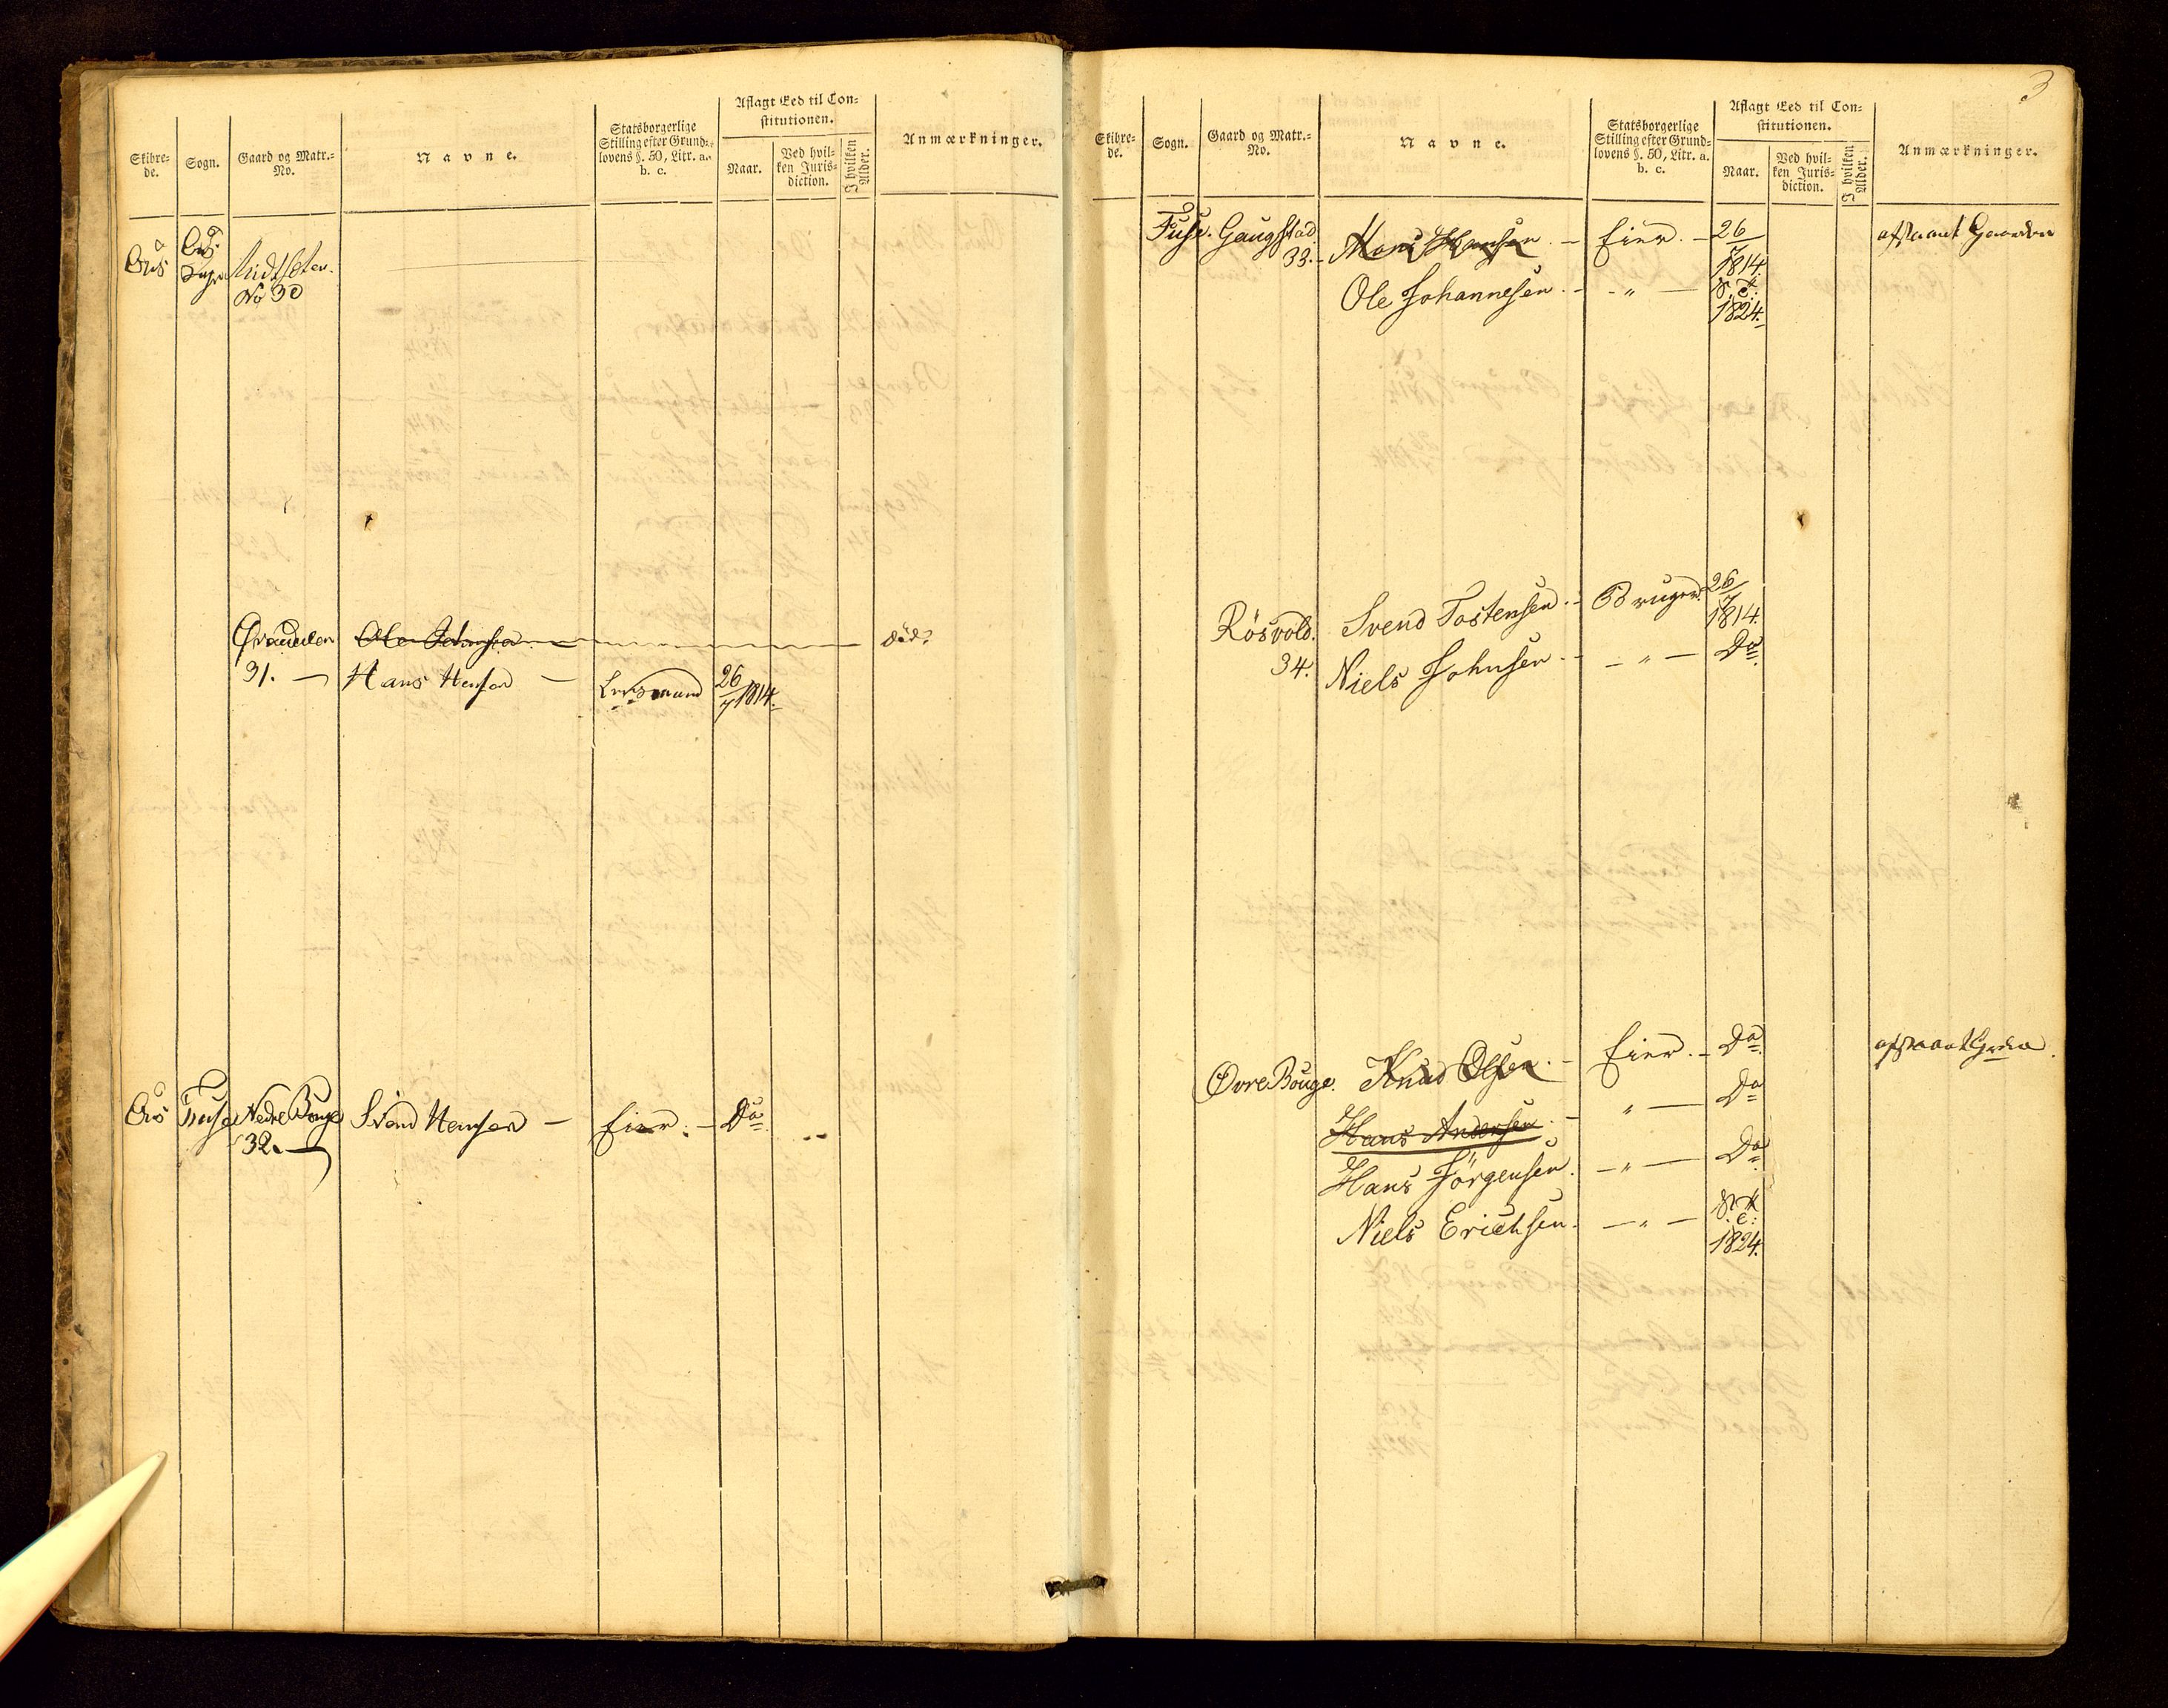 Skibre-
de.
Sogn.
Gaard og Matr.-
No.
Navne.
Statsborgerlige
Stilling efter Grund-
lovens §. 50, Litr. a.
b. c.
Aflagt Eed til Con-
stitutionen.
Naar.
Ved hvil-
ken Juris-
diction.
I hvilken
Alder.
Anmærkninger.
Ous
Ous
Sogn
No 30
Ole Johnsen
død
31.
Hans Hansen
26
7 1814.
Ous Fuse Nedre Bouge Svend Hansen Eier. Do
32.
3
Skibre-
de.
Sogn.
Gaard og Matr.-
No.
Navne.
Statsborgerlige
Stilling efter Grund-
lovens §. 50, Litr. a.
b. c.
Aflagt Eed til Con-
stitutionen.
Naar.
Ved hvil-
ken Juris-
diction.
I hvilken
Alder.
Anmærkninger.
Fuse. Gaugstad Mons Hansen. Eier. 26 afstaaet Gaarden
33. 7
1814.
Ole Johannesen. " 
1824.
Rösvold. Svend Tostensen. Bruger. 26
7
1814.
34. Niels Johnsen. " Do
Øvre Bouge. Knud Olsen. Eier. Do afstaaet
Hans Andersen. " Do
Hans Jörgensen. " Do
Niels Erichsen. "
1824.